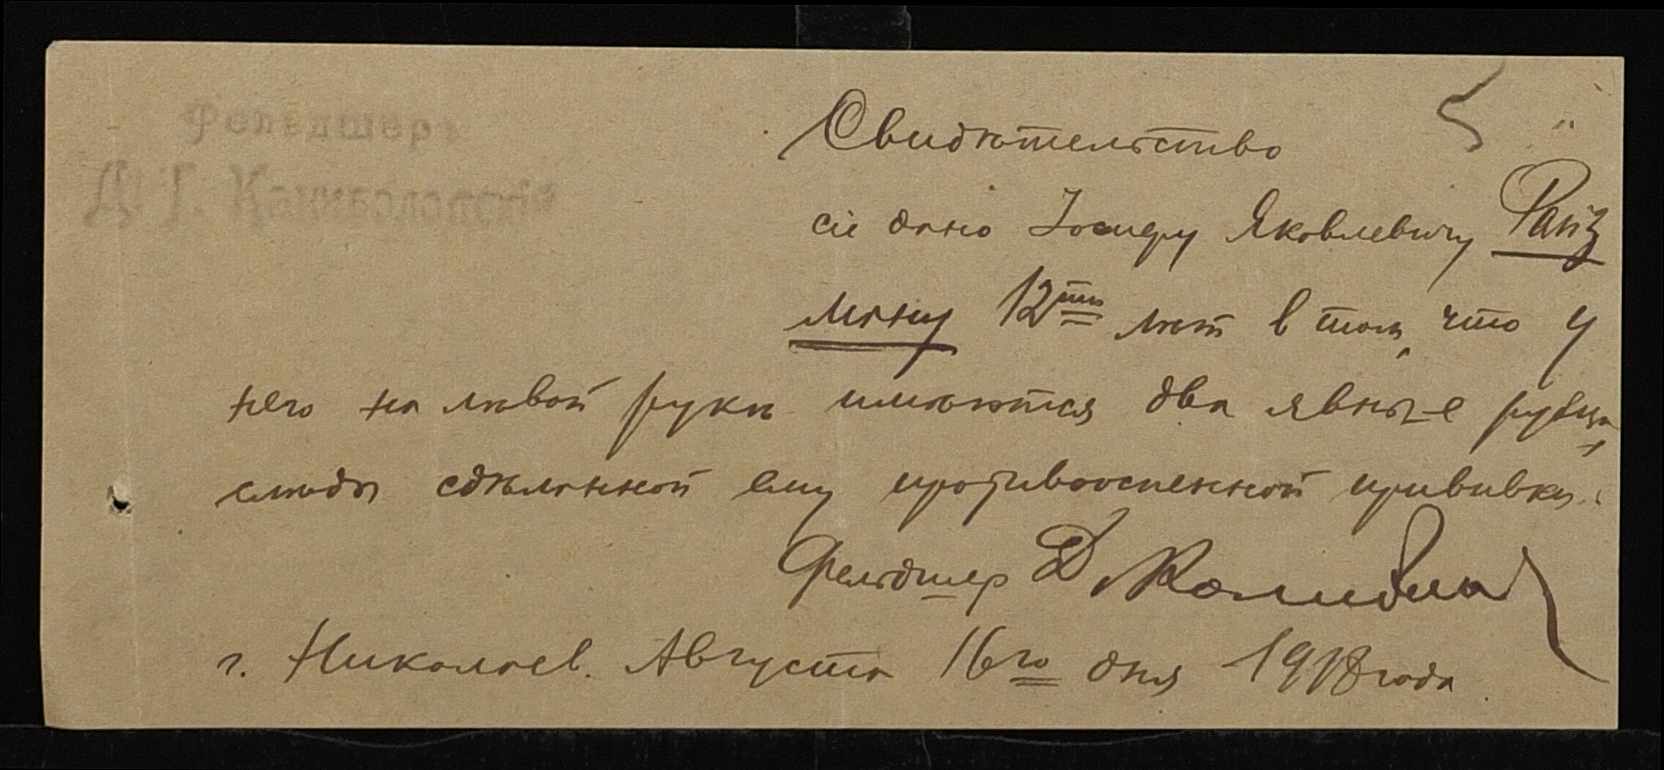 Фельдшеръ
Д. Г.
5
Свидѣтельство
сіе дано Іосифу Яковлевичу Райз
ману 12ти лѣт в том, что у
него на лѣвой рукѣ имѣются два явные рубца,
слѣды сдѣланной ему противооспенной прививки.
Фельдшер Д.
г. Николаев. Августа 16го дня 1918 года